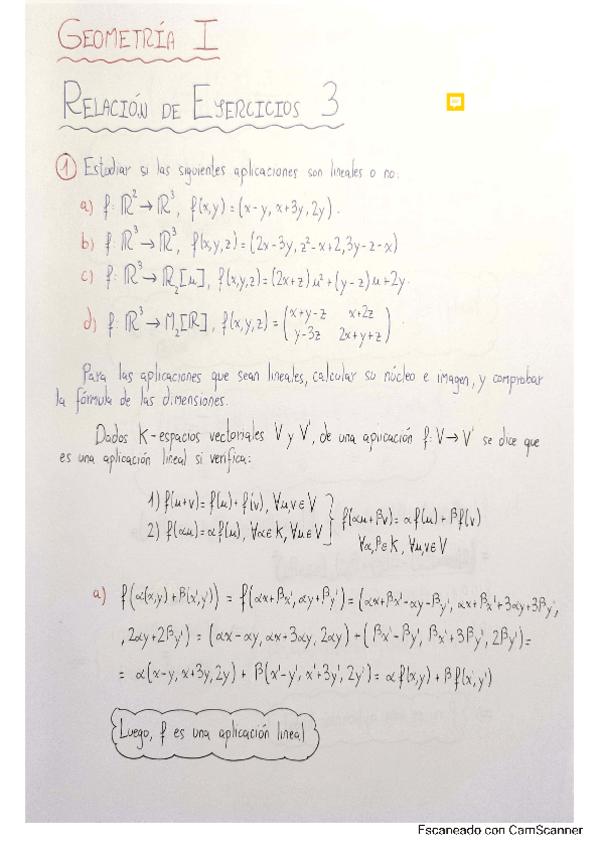 GEOMETRÍA I
RELACIÓN DE EJERCICIOS 3
① Estudiar si las siguientes aplicaciones son lineales o no:
a) f: ℝ² → ℝ³, f(x,y) = (x-y, x+3y, 2y).
b) f: ℝ³ → ℝ³, f(x,y,z) = (2x-3y, z²-x+2, 3y-z-x)
c) f: ℝ³ → ℝ₂[u], f(x,y,z) = (2x+z)u² + (y-z)u + 2y.
d) f: ℝ³ → M₂[ℝ], f(x,y,z) = (x+y-z x+2z
y-3z 2x+y+z)
Para las aplicaciones que sean lineales, calcular su núcleo e imagen, y comprobar
la fórmula de las dimensiones.
Dados K-espacios vectoriales V y V', de una aplicación f: V → V' se dice que
es una aplicación lineal si verifica:
1) f(u+v) = f(u) + f(v), ∀u,v∈V
2) f(αu) = αf(u), ∀α∈K, ∀u∈V
} f(αu+βv) = αf(u) + βf(v)
∀α,β∈K, ∀u,v∈V
a) f(α(x,y) + β(x',y')) = f(αx+βx', αy+βy') = (αx+βx'-αy-βy', αx+βx'+3αy+3βy',
, 2αy+2βy') = (αx-αy, αx+3αy, 2αy) + (βx'-βy', βx'+3βy', 2βy') =
= α(x-y, x+3y, 2y) + β(x'-y', x'+3y', 2y') = αf(x,y) + βf(x',y')
Luego, f es una aplicación lineal
Escaneado con CamScanner